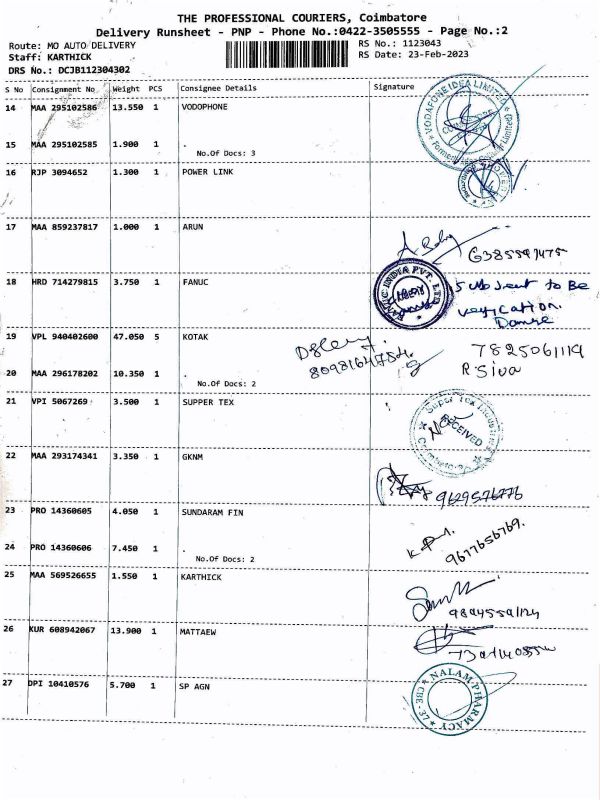 THE PROFESSIONAL COURIERS, Coimbatore
Delivery Runsheet - PNP - Phone No.:0422-3505555 - Page No.:2
Route: MO AUTO DELIVERY RS No.: 1123043
Staff: KARTHICK RS Date: 23-Feb-2023
DRS No.: DCJB112304302
S No Consignment No Weight PCS Consignee Details Signature
14 MAA 295102586 13.550 1 VODOPHONE
VODAFONE IDEA LIMITED
15 MAA 295102585 1.900 1 .
No.Of Docs: 3
16 RJP 3094652 1.300 1 POWER LINK
17 MAA 859237817 1.000 1 ARUN
18 HRD 714279815 3.750 1 FANUC
FANUC INDIA PVT. LTD
Subject to Be
verification.
19 VPL 940402600 47.050 5 KOTAK
7825061119
20 MAA 296178202 10.350 1 .
R Siva
No.Of Docs: 2
21 VPI 5067269 3.500 1 SUPPER TEX
Super Tex Industries
RECEIVED
22 MAA 293174341 3.350 1 GKNM
9629576776
23 PRO 14360605 4.050 1 SUNDARAM FIN
9677656769.
24 PRO 14360606 7.450 1 .
No.Of Docs: 2
25 MAA 569526655 1.550 1 KARTHICK
26 KUR 608942067 13.900 1 MATTAEW
27 DPI 10410576 5.700 1 SP AGN
NALAM PHARMACY
CBE - 37